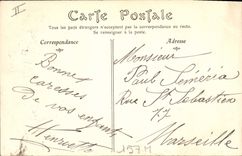 II
Carte Postale
Tous les pays étrangers n'acceptent pas la correspondance au recto.
Se renseigner à la poste.
Correspondance
Adresse
Bonnes
caresses
De vos enfants
Henriette
Monsieur
Paul Séméria
Rue St Sébastien
77
Marseille